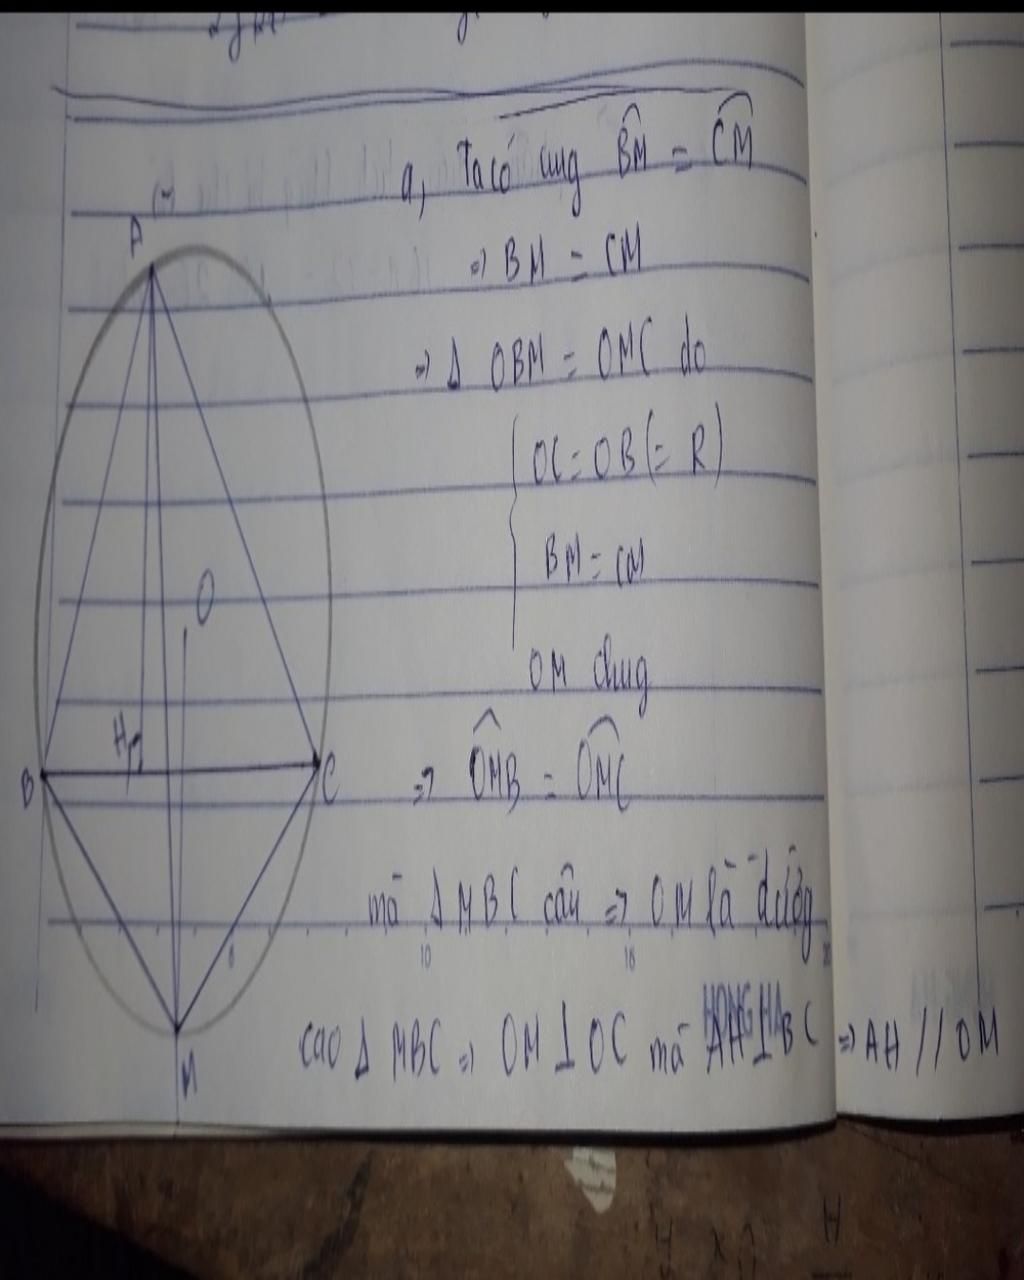 a, Ta có cung BM = CM
=> BM = CM
=> Δ OBM = OMC do
OC = OB (= R)
BM = CM
OM chung
=> OMB = OMC
mà Δ MBC cân => OM là đường
cao Δ MBC => OM ⊥ OC mà AH ⊥ BC => AH // OM
A
O
H
B
C
M
10
HONG HA